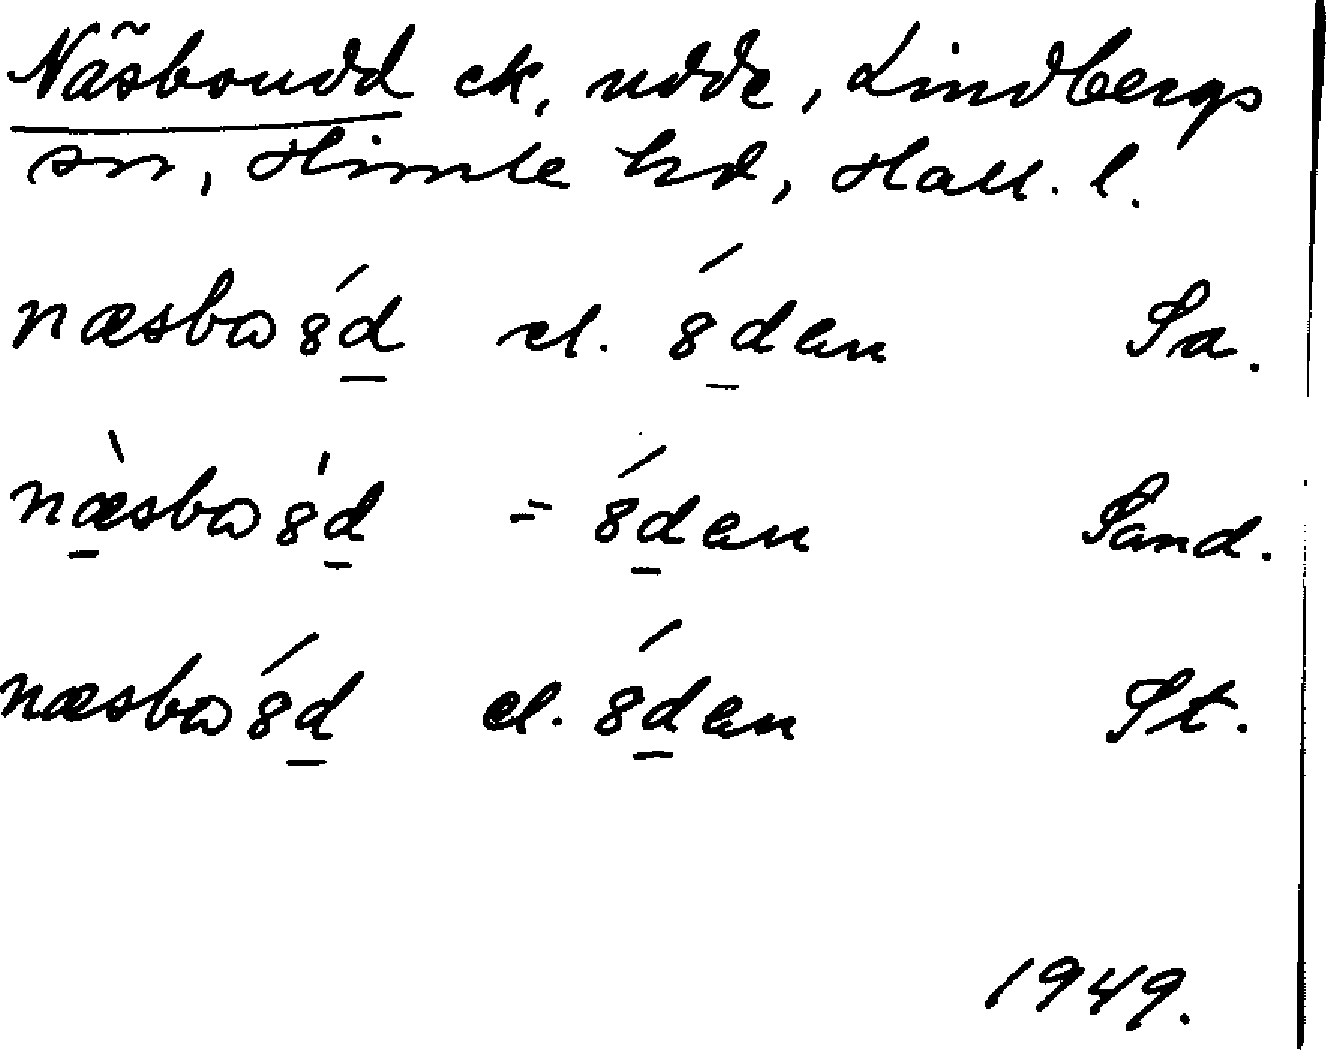 Näsboudd ek, udde, Lindbergs
sn, Himle hd, Hall. l.
næsbωȣ́d̲ el. ȣ́d̲en Sa.
næ̲̀sbωȣ̍d̲ = ȣ́d̲en Sand.
næsbωȣ́d̲ el. ȣ́d̲en St.
1949.